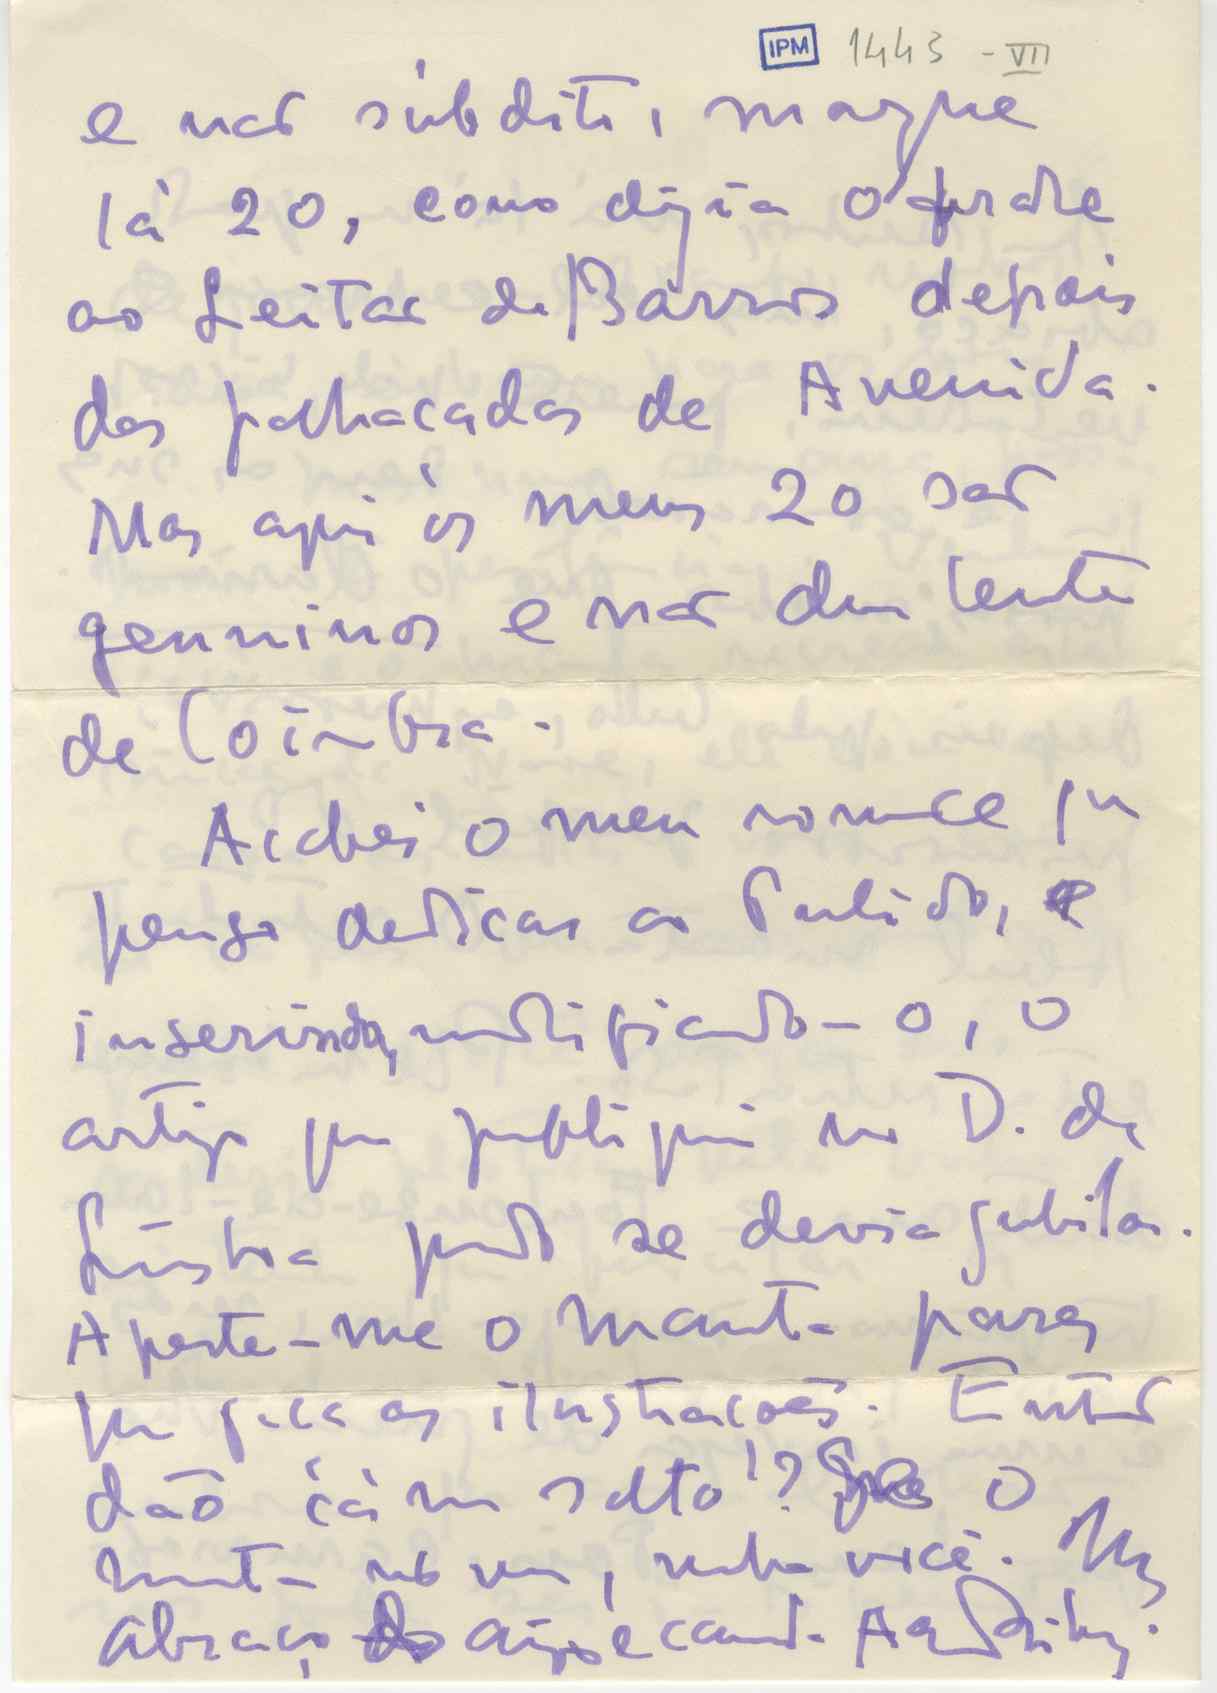 IPM 1443 - VII
e não súbdito,
lá 20, como dizia o frade
ao Leitão de Barros depois
das palhaçadas de Avenida.
Mas aqui os meus 20 são
genuinos e não dum lente
de Coimbra.
Acabei o meu romance qu
penso dedicar ao Partido, e
inserindo, modificando-o, o
artigo que publiquei no D. de
Lisboa quando se devia jubilar.
Aperte-me o Manta para
que faça as ilustrações. Então
dão cá um salto!? Se o
Manta não vem, venha você. Um
abraço, do amigo e camarada Aquilino.